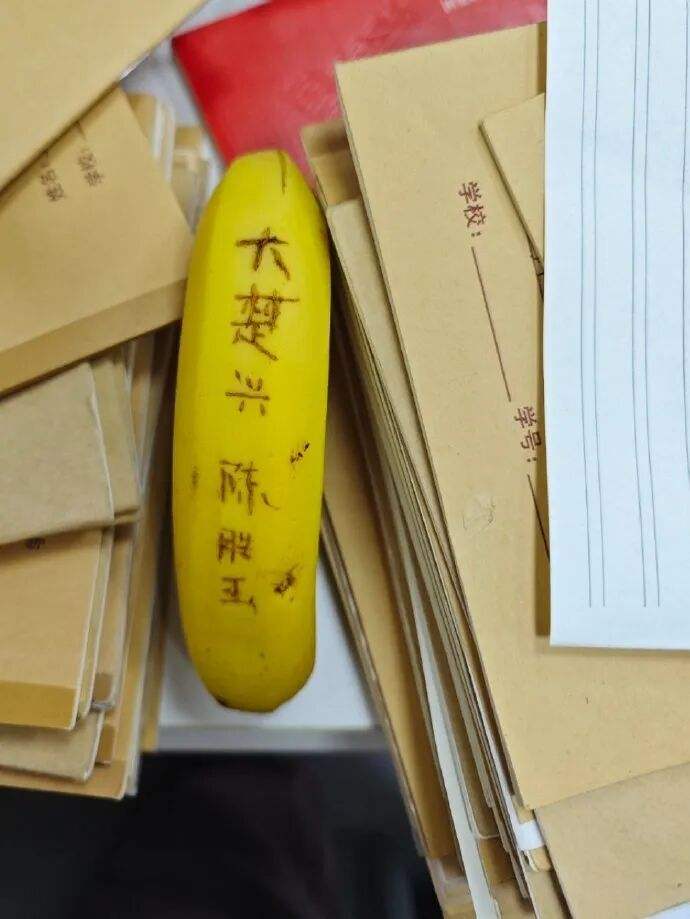 大楚兴
陈胜王
学校:
学号:
学校:
姓名: